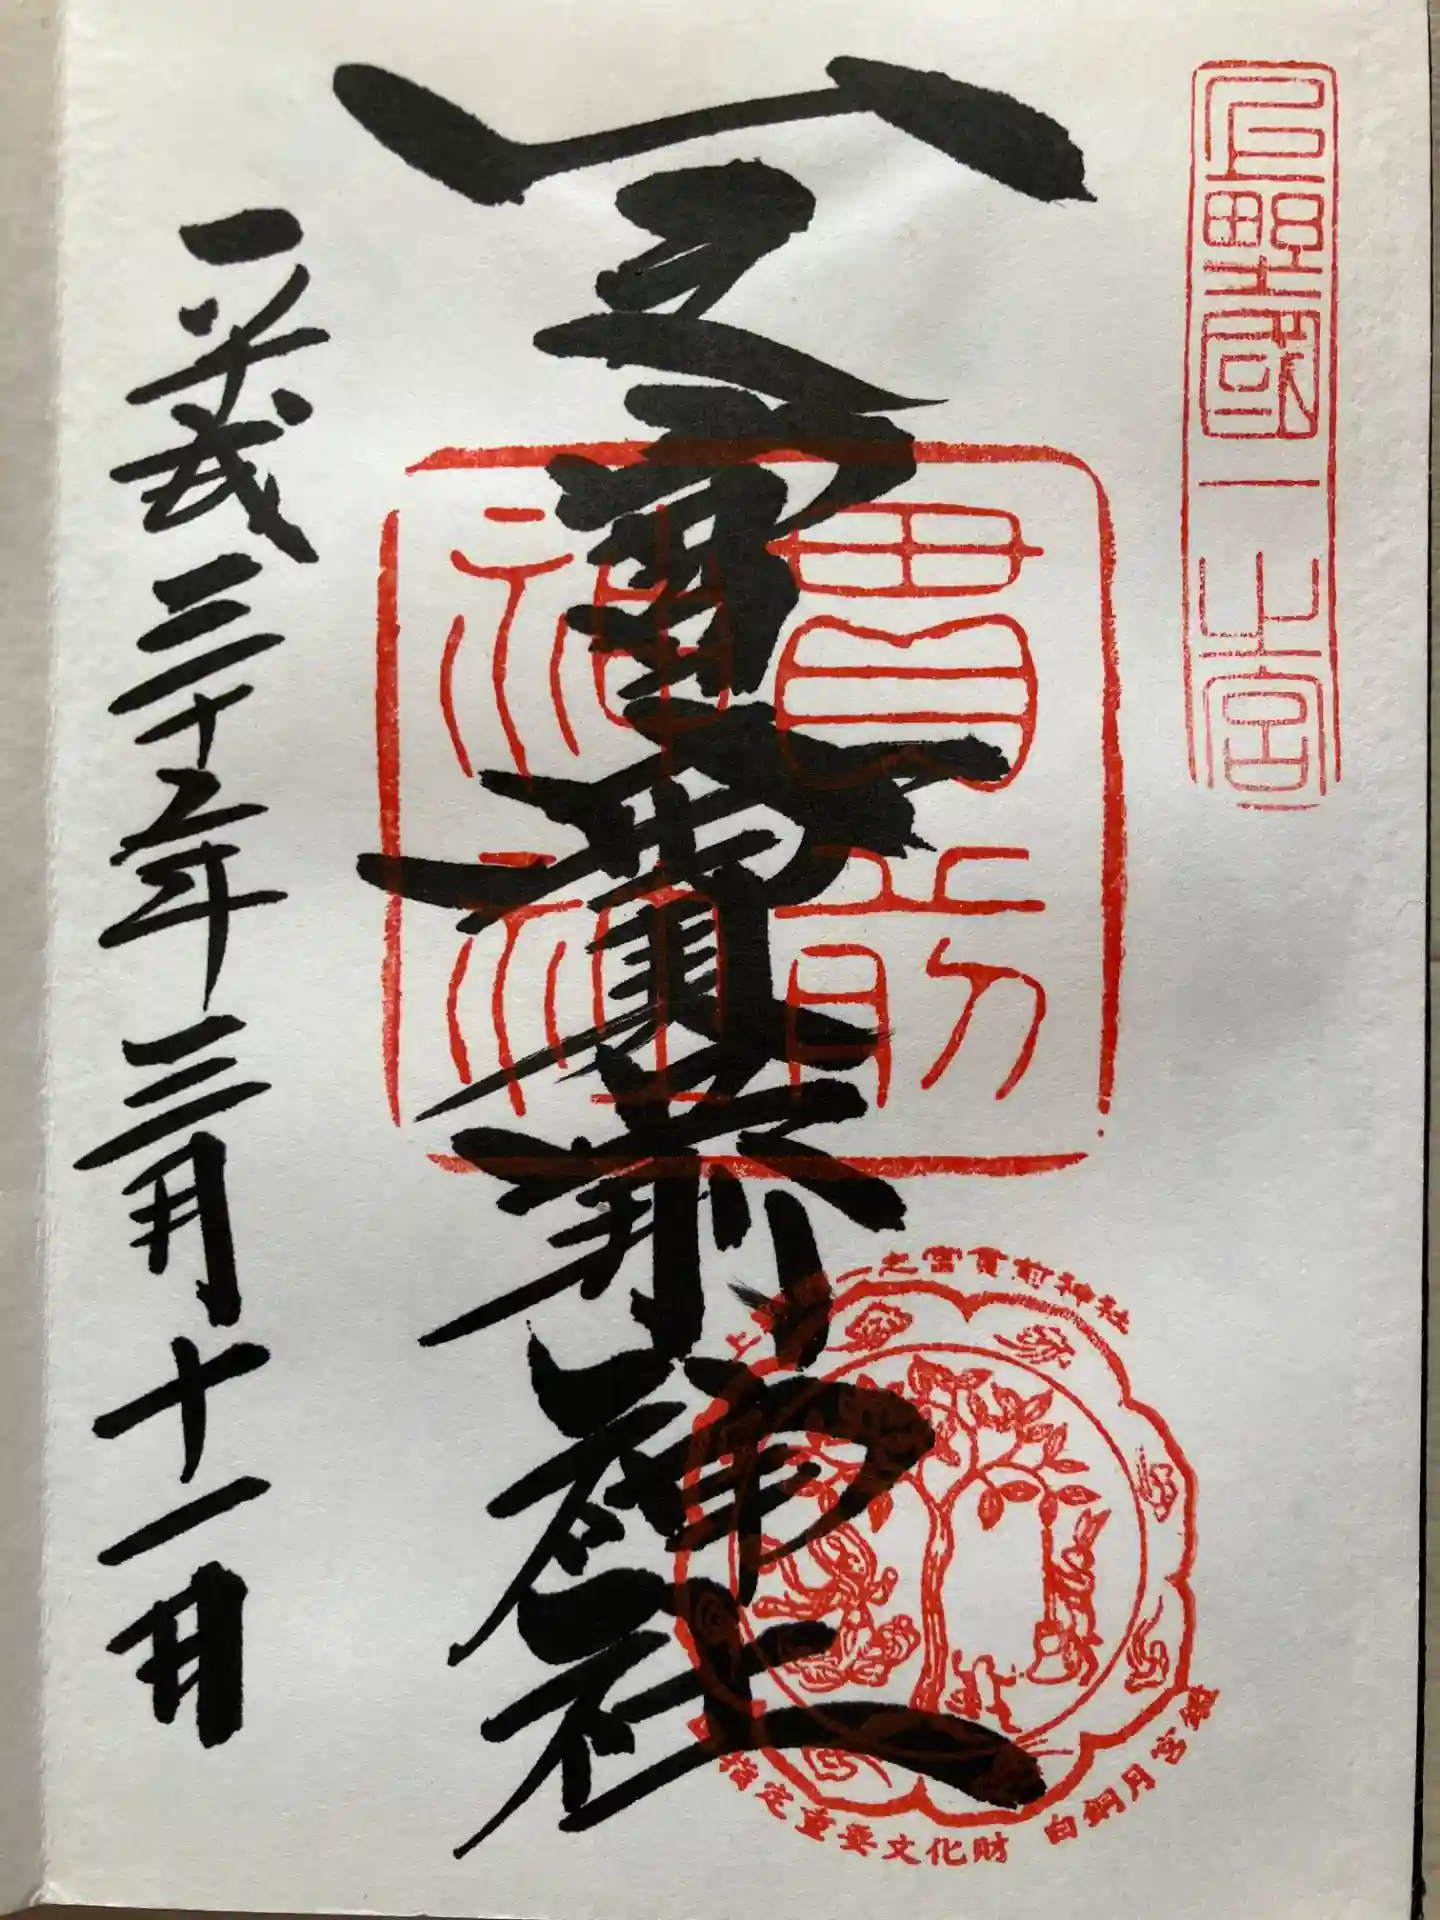 上野國一之宮
一之宮貫前神社
貫前神社
平成三十年三月十一日
一之宮貫前神社
指定重要文化財 白銅月宮鑑